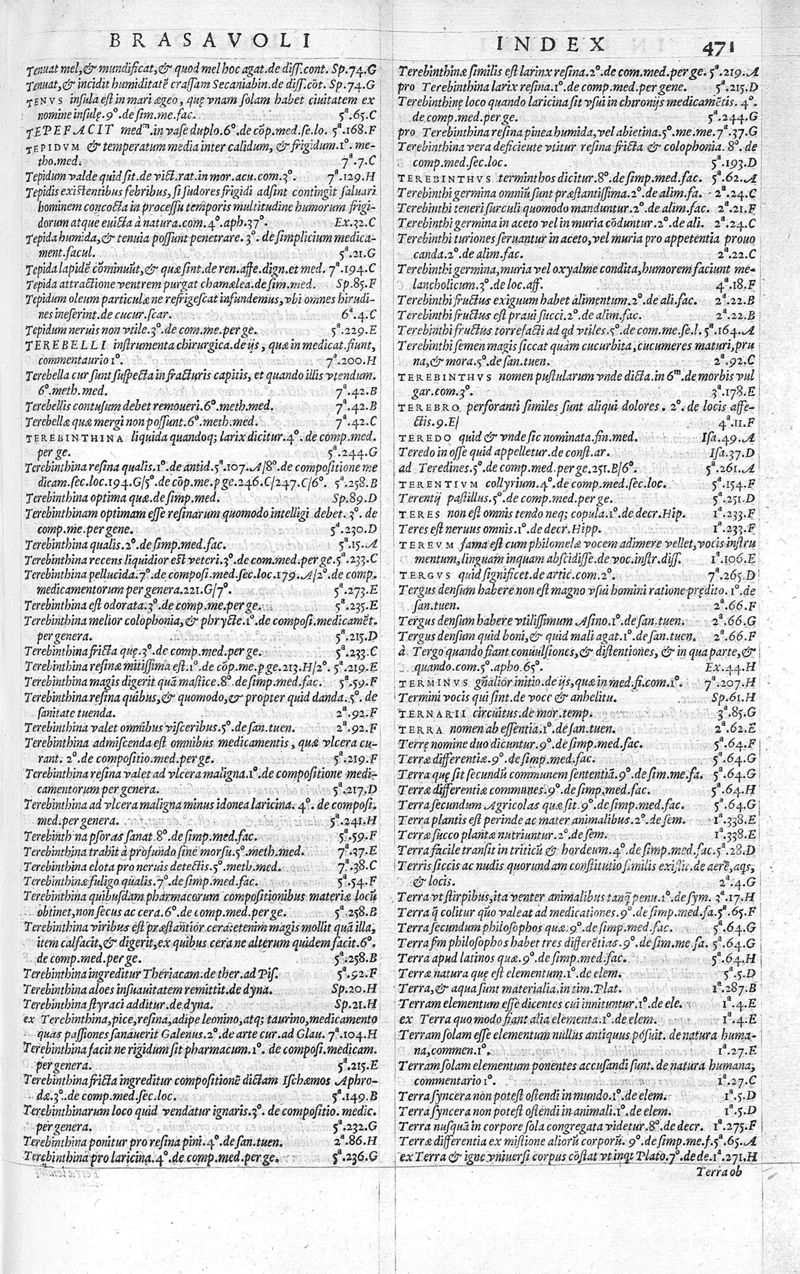 BRASAVOLI
Tenuat mel,& mundificat,& quod mel hoc agat.de diff.cont. Sp.74.G
Tenuat,& incidit humiditatẽ crassam Secaniabin.de diff.cõt. Sp.74.G
TENVS insula est in mari ægeo, quę vnam solam habet ciuitatem ex
nomine insulę.9°.de sim.me.fac. 5ª.65.C
TEPEFACIT medᵐ.in vase duplo.6°.de cõp.med.se.lo. 5ª.168.F
TEPIDVM & temperatum media inter calidum, & frigidum.1°. me-
tho.med. 7ª.7.C
Tepidum valde quid sit.de vict.rat.in mor.acu.com.3°. 7ª.129.H
Tepidis existentibus febribus, si sudores frigidi adsint contingit saluari
hominem concocta in processu temporis multitudine humorum frigi-
dorum atque euicta à natura.com.4°.aph.37°. Ex.32.C
Tepida humida,& tenuia possunt penetrare. 3°. de simplicium medica-
ment.facul. 5ª.21.G
Tepida lapidẽ cõminuũt,& quæ sint.de ren.affe.dign.et med. 7ª.194.C
Tepida attractione ventrem purgat chamælea.de sim.med. Sp.85.F
Tepidum oleum particulæ ne refrigescat infundemius, vbi omnes hirudi-
nes ineserint.de cucur.scar. 6ª.4.C
Tepidum neruis non vtile.3°.de com.me.per ge. 5ª.229.E
TEREBELLI instrumenta chirurgica.de ijs, quæ in medicat.fiunt,
commentario 1°. 7ª.200.H
Terebella cur sunt suspecta in fracturis capitis, et quando illis vtendum.
6°.meth.med. 7ª.42.B
Terebellis contusum debet remoueri.6°.meth.med. 7ª.42.B
Terebellæ quæ mergi non possunt.6°.meth.med. 7ª.42.C
TEREBINTHINA liquida quandoq; larix dicitur.4°.de comp.med.
per ge. 5ª.244.G
Terebinthina resina qualis.1°.de antid.5ª.107.A/8°.de compositione me
dicam.sec.loc.194.G/5°.de cõp.me.pge.246.C/247.C/6°. 5ª.258.B
Terebinthina optima quæ.de simp.med. Sp.89.D
Terebinthinam optimam esse resinarum quomodo intelligi debet.3°.de
comp.me.per gene. 5ª.230.D
Terebinthina qualis.2°.de simp.med.fac. 5ª.15.A
Terebinthina recens liquidior est veteri.3°.de com.med.per ge.5ª.233.C
Terebinthina pellucida.7°.de composi.med.sec.loc.179.A/2°.de comp.
medicamentorum per genera.221.G/7°. 5ª.273.E
Terebinthina est odorata.3°.de comp.me.per ge. 5ª.235.E
Terebinthina melior colophonia,& phrycte.1°.de composi.medicamẽt.
per genera. 5ª.215.D
Terebinthina fricta quę.3°.de comp.med.per ge. 5ª.233.C
Terebinthina resinæ mitissima est.1°.de cõp.me.pge.213.H/2°. 5ª.219.E
Terebinthina magis digerit quã mastice.8°.de simp.med.fac. 5ª.59.F
Terebinthina resina quibus,& quomodo,& propter quid danda.5°.de
sanitate tuenda. 2ª.92.F
Terebinthina valet omnibus visceribus.5°.de san.tuen. 2ª.92.F
Terebinthina admiscenda est omnibus medicamentis, quæ vlcera cu-
rant. 2°.de compositio.med.per ge. 5ª.219.F
Terebinthina resina valet ad vlcera maligna.1°.de compositione medi-
camentorum per genera. 5ª.217.D
Terebinthina ad vlcera maligna minus idonea laricina.4°.de composi.
med.per genera. 5ª.241.H
Terebinth na psoras sanat 8°.de simp.med.fac. 5ª.59.F
Terebinthina trahit à profundo sine morsu.5°.meth.med. 7ª.37.E
Terebinthina elota pro neruis detectis.5°.meth.med. 7ª.38.C
Terebinthinæ fuligo qualis.7°.de simp.med.fac. 5ª.54.F
Terebinthina quibusdam pharmacorum compositionibus materiæ locũ
obtinet,non secus ac cera.6°.de comp.med.per ge. 5ª.258.B
Terebinthina viribus est præstantior cera:etenim magis mollit quã illa,
item calfacit,& digerit,ex quibus cera ne alterum quidem facit.6°.
de comp.med.per ge. 5ª.258.B
Terebinthina ingreditur Theriacam.de ther.ad Pis. 5ª.92.F
Terebinthina aloes insuauitatem remittit.de dyna. Sp.20.H
Terebinthina styraci additur.de dyna. Sp.21.H
ex Terebinthina,pice,resina,adipe leonino,atq; taurino,medicamento
quas passiones sanauerit Galenus.2°.de arte cur.ad Glau. 7ª.104.H
Terebinthina facit ne rigidum sit pharmacum.1°. de composi.medicam.
per genera. 5ª.215.E
Terebinthina fricta ingreditur compositionẽ dictam Ischæmos Aphro-
dæ.3°.de comp.med.sec.loc. 5ª.149.B
Terebinthinarum loco quid vendatur ignaris.3°. de compositio. medic.
per genera. 5ª.232.G
Terebinthina ponitur pro resina pini.4°.de san.tuen. 2ª.86.H
Terebinthina pro laricina.4°.de comp.med.per ge. 5ª.236.G
INDEX 471
Terebinthinæ similis est larinx resina.2°.de com.med.per ge. 5ª.219.A
pro Terebinthina larix resina.1°.de comp.med.per gene. 5ª.215.D
Terebinthinę loco quando laricina sit vsui in chronijs medicamẽtis. 4°.
de comp.med.per ge. 5ª.244.G
pro Terebinthina resina pinea humida, vel abietina.5°.me.me.7ª.37.G
Terebinthina vera deficiente vtitur resina fricta & colophonia. 8°. de
comp.med.sec.loc. 5ª.193.D
TEREBINTHVS terminthos dicitur.8°.de simp.med.fac. 5ª.62.A
Terebinthi germina omniũ sunt præstantissima.2°.de alim.fa. 2ª.24.C
Terebinthi teneri surculi quomodo manduntur.2°.de alim.fac. 2ª.21.F
Terebinthi germina in aceto vel in muria cõduntur.2°.de ali. 2ª.24.C
Terebinthi turiones seruantur in aceto, vel muria pro appetentia prouo
canda.2°.de alim.fac. 2ª.22.C
Terebinthi germina,muria vel oxyalme condita,humorem faciunt me-
lancholicum.3°.de loc.aff. 4ª.18.F
Terebinthi fructus exiguum habet alimentum.2°.de ali.fac. 2ª.22.B
Terebinthi fructus est praui succi.2°.de alim.fac. 2ª.22.B
Terebinthi fructus torrefacti ad qd vtiles.5°.de com.me.se.l. 5ª.164.A
Terebinthi semen magis siccat quàm cucurbita, cucumeres maturi, pru
na,& mora.5°.de san.tuen. 2ª.92.C
TEREBINTHVS nomen pustularum vnde dicta.in 6ᵐ.de morbis vul
gar.com.3°. 3ª.178.E
TEREBRO perforanti similes sunt aliqui dolores. 2°. de locis affe-
ctis.9.E/ 4ª.11.F
TEREDO quid & vnde sic nominata.fin.med. Isa.49.A
Teredo in osse quid appelletur.de const.ar. Isa.37.D
ad Teredines.5°.de comp.med.per ge.251.B/6°. 5ª.261.A
TERENTIVM collyrium.4°.de comp.med.sec.loc. 5ª.154.F
Terentij pastillus.5°.de comp.med.per ge. 5ª.251.D
TERES non est omnis tendo neq; copula.1°.de decr.Hip. 1ª.233.F
Teres est neruus omnis.1°.de decr.Hipp. 1ª.233.F
TEREVM fama est cum philomelæ vocem adimere vellet, vocis instru
mentum, linguam inquam abscidisse.de voc.instr.diss. 1ª.106.E
TERGVS quid significet.de artic.com.2°. 7ª.265.D
Tergus densum habere non est magno vsui homini ratione prędito.1°.de
san.tuen. 2ª.66.F
Tergus densum habere vtilissimum Asino.1°.de san.tuen. 2ª.66.G
Tergus densum quid boni,& quid mali agat.1°.de san.tuen. 2ª.66.F
à Tergo quando fiant conuulsiones,& distentiones, & in qua parte,&
quando.com.5°.apho.65°. Ex.44.H
TERMINVS gñalior initio.de ijs,quæ in med.fi.com.1°. 7ª.207.H
Termini vocis qui sint.de voce & anhelitu. Sp.61.H
TERNARII circuitus.de mor.temp. 3ª.85.G
TERRA nomen ab essentia.1°.de san.tuen. 2ª.62.E
Terrę nomine duo dicuntur.9°.de simp.med.fac. 5ª.64.F
Terræ differentiæ.9°.de simp.med.fac. 5ª.64.G
Terra quę sit secundũ communem sententiã.9°.de sim.me.fa. 5ª.64.G
Terræ differentiæ communes.9°.de simp.med.fac. 5ª.64.H
Terra secundum Agricolas quæ sit.9°.de simp.med.fac. 5ª.64.G
Terra plantis est perinde ac mater animalibus.2°.de sem. 1ª.338.E
Terræ succo plantæ nutriuntur.2°.de sem. 1ª.338.E
Terra facile transit in triticũ & hordeum.4°.de simp.med.fac.5ª.28.D
Terris siccis ac nudis quorundam constitutio similis existit.de aerẽ,aqs,
& locis. 2ª.4.G
Terra vt stirpibus,ita venter animalibus tanq̃ penu.1°.de sym. 3ª.17.H
Terra q̃ colitur quo valeat ad medicationes.9°.de simp.med.fa.5ª.65.F
Terra secundum philosophos quæ.9°.de simp.med.fac. 5ª.64.G
Terra sm philosophos habet tres differẽtias.9°.de sim.me.fa. 5ª.64.G
Terra apud latinos quæ.9°.de simp.med.fac. 5ª.64.H
Terræ natura quę est elementum.1°.de elem. 5ª.5.D
Terra,& aqua sunt materialia.in tim.Plat. 1ª.287.B
Terram elementum esse dicentes cui innituntur.1°.de ele. 1ª.4.E
ex Terra quo modo fiant alia elementa.1°.de elem. 1ª.4.E
Terram solam esse elementum nullus antiquus posuit. de natura huma-
na,commen.1°. 1ª.27.E
Terram solam elementum ponentes accusandi sunt.de natura humana,
commentario 1°. 1ª.27.C
Terra syncera non potest ostendi in mundo.1°.de elem. 1ª.5.D
Terra syncera non potest ostendi in animali.1°.de elem. 1ª.5.D
Terra nusquã in corpore sola congregata videtur.8°.de decr. 1ª.275.F
Terræ differentia ex mistione alioru corporũ. 9°.de simp.me.f.5ª.65.A
ex Terra & igne vniuersi corpus cõstat vt inqt Plato.7°.de de.1ª.271.H
Terra ob